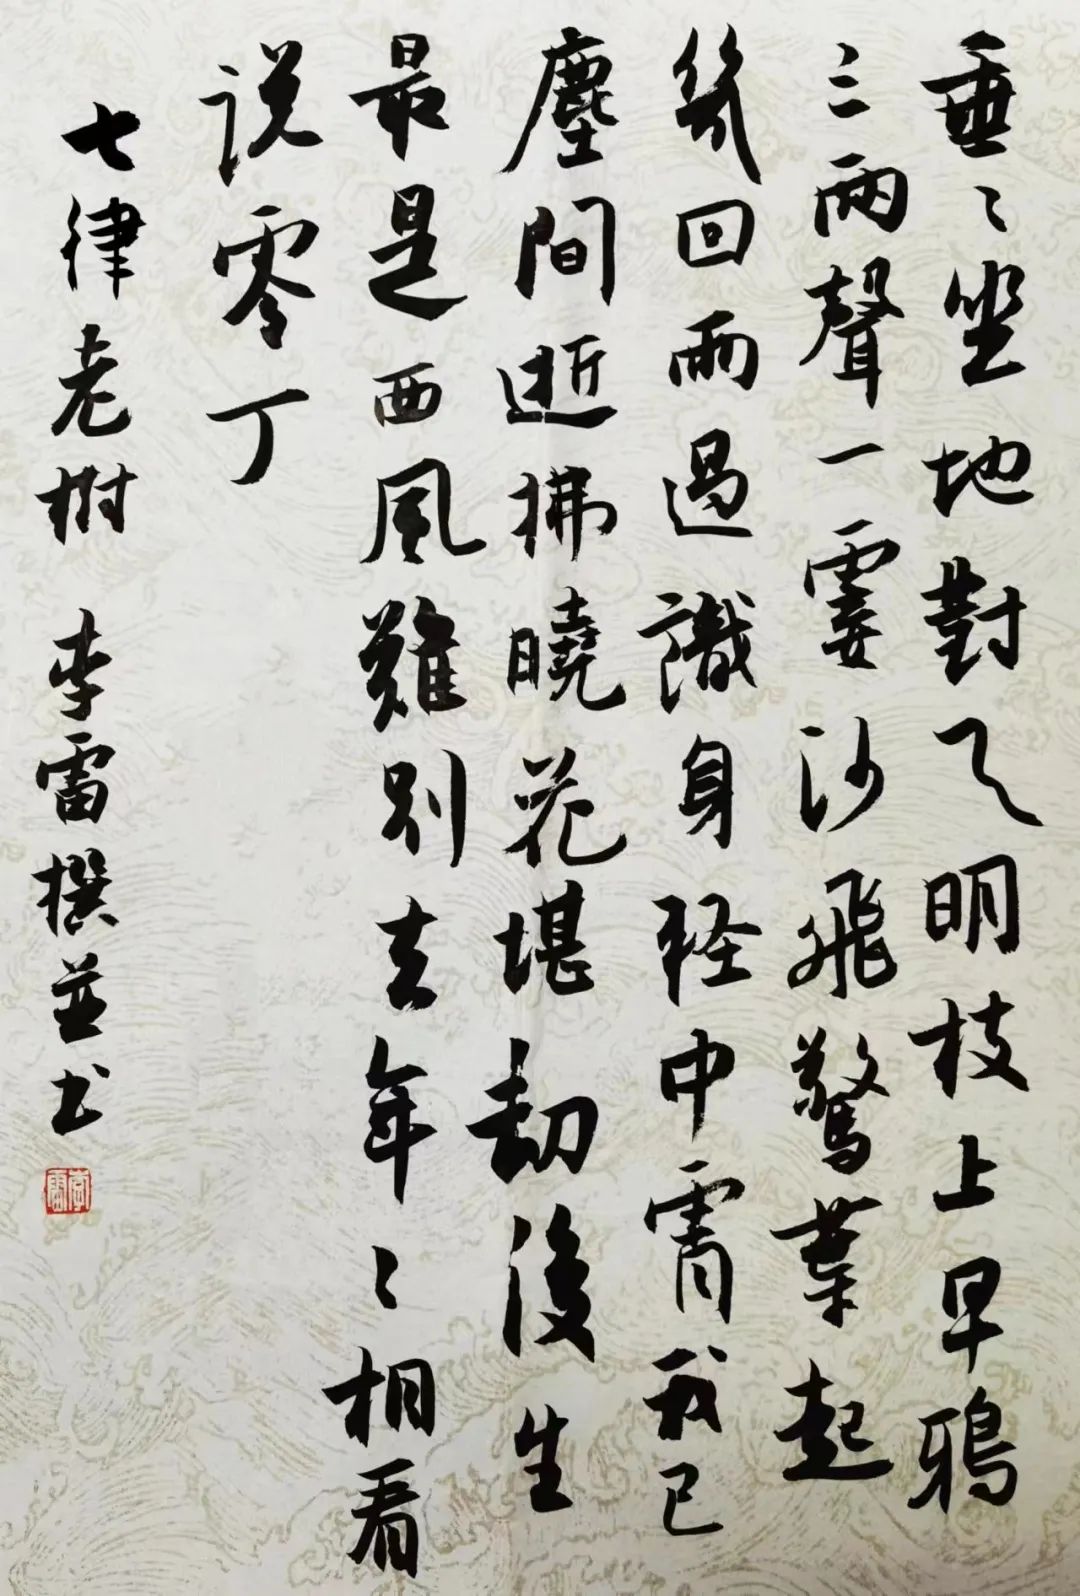 垂〻坐地對天明枝上早鴉
三兩聲一霎沙飛驚葉起
幾回雨過識身輕中宵我已
塵間逝拂曉花堪劫後生
最是西風難別去年〻相看
说零丁
七律老樹 李雷撰並书
李雷